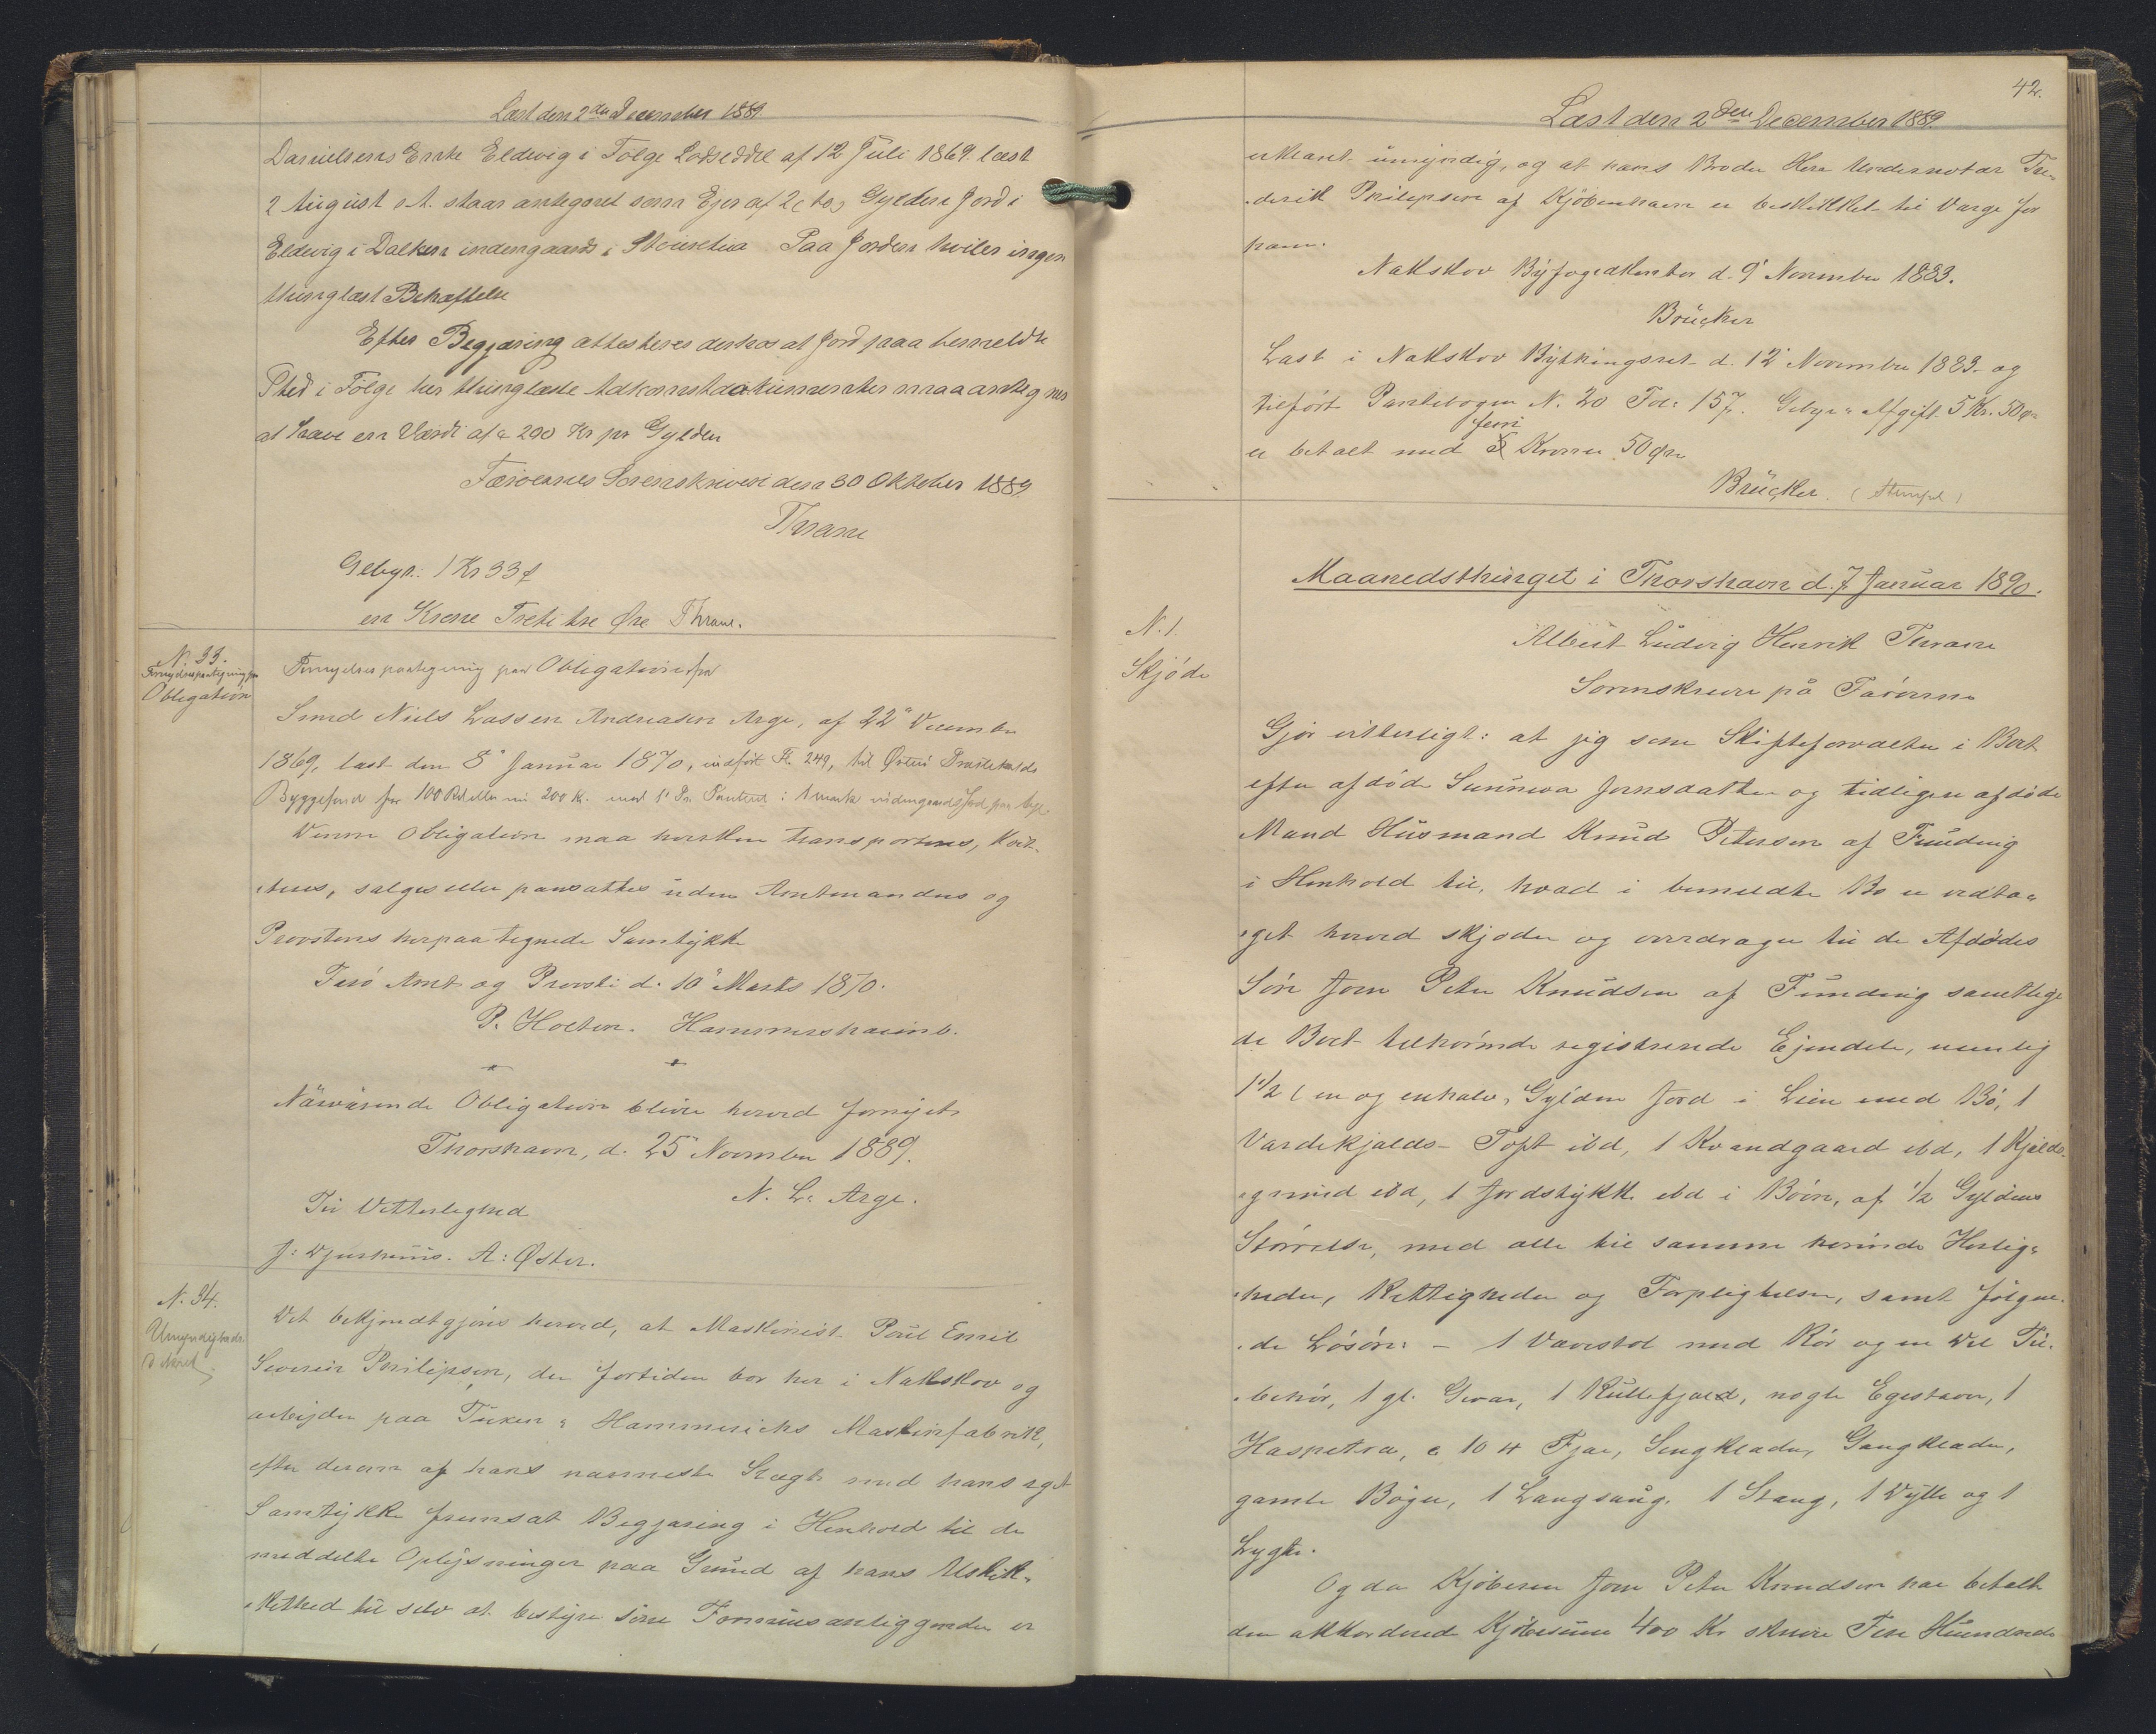 Læst den 2den December 1889.
Danielsens Enke Eldevig i Følge Lodseddel af 12 Juli 1869 læst
2 August s. A. staar antegnet som Ejer af 2 (to) Gylden Jord i
Eldevig i Dalken indengaards i Paa Jorden hviler ingen
thinglæst Behæftelse
Efter Begjæring attesteres derhos at Jord paa bemeldte
Sted i Følge her thinglæste Adkomstdokumenter maa antegnes
at have en Værdi af c 290 Kr pr Gylden
Færøernes Sorenskriveri den 30 Oktober 1889
Thrane
Gebyr: 1 Kr 33 ø
en Krone Treti tre Øre Thrane.
N. 33.
Fornyelsespaategning paa
Obligation
Fornyelsespaategning paa Obligation fra
Smed Niels Lassen Andreasen Arge, af 22" December
1869, læst den 8" Januar 1870, indført Fl. 249, til Østerø Præstekalds
Byggefond for 100 Rd eller nu 200 Kr. med 1" Pr. Panteret i 1 mark indengaards Jord paa Arge.
Denne Obligation maa hverken transporteres, kvit-
teres, sælges eller pansættes uden Amtmandens og
Provstens herpaa tegnede Samtykke
Færø Amt og Provsti d. 10" Marts 1870.
P. Holten. Hammershaimb.
Närvärende Obligation bliver herved fornyet
Thorshavn, d. 25" November 1889.
N. L. Arge.
Til Vitterlighed
J: Djurhuus. A: Øster.
N. 34.
Umyndigheds
Dekret
Det bekjendtgjøres herved, at Maskinist Poul Emil
Severin Philipsen, der fortiden bor her i Nakskov og
arbejder paa Tuxen & Hammerichs Maskinfabrik,
efter derom af hans nærmeste Slægt med hans eget
Samtykke fremsat Begjæring i Henhold til de
meddelte Oplysninger paa Grund af hans Uskik-
kethed til selv at bestyre sine Formuesanliggender er
42.
Læst den 2den December 1889.
erklæret umyndig, og at hans Broder Herr Undernotar Fre-
derik Philipsen af Kjøbenhavn er beskikket til Værge for
ham.
Nakskov Byfogedkontor d. 9' November 1883.
Brücker
Læst i Nakskov Bythingsret d. 12' November 1883 og
tilført Pantebogen N. 20 Fol: 157. Gebyr & Afgift 5 Kr. 50 øre
fem
er betalt med 5 Kroner 50 øre
Brücker. (Stempel)
Maanedsthinget i Thorshavn d. 7 Januar 1890.
N. 1.
Skjøde
Albert Ludvig Henrik Thrane
Sorenskriver på Færøerne
Gjør vitterligt: at jeg som Skifteforvalter i Boet
efter afdøde Sunneva Joensdatter og tidligere afdøde
Mand Husmand Knud Petersen af Funding
i Henhold til, hvad i bemeldte Bo er vedta-
get herved skjøder og overdrager til de Afdødes
Søn Joen Peter Knudsen af Funding samtlige
de Boet tilhørende registrerede Ejendele, nemlig
1 1/2 (en og enhalv) Gylden Jord i Lien med Bö, 1
Toft ibd, 1 Kvandgaard ibd, 1 Kjeld-
grund ibd, 1 Jordstykke ibd i Böen, af 1/2 Gyldens
Størrelse, med alle til samme hørende Herlig-
heder, Rettigheder og Forpligtelser, samt følgen-
de Løsøre: - 1 Vævestol med Rör og en Del Til-
behör, 1 gl. Gevær, 1 Kullefjæld, nogle Egestaver, 1
Haspetræ, c 10 # Fjær, Sengklæder, Gangklæder,
gamle Bøger, 1 Langsaug, 1 Stang, 1 Dylle og 1
Lygte.
Og da Kjøberen Joen Peter Knudsen har betalt
den akkorderede Kjøbesum 400 Kr skriver Fire Hundrede